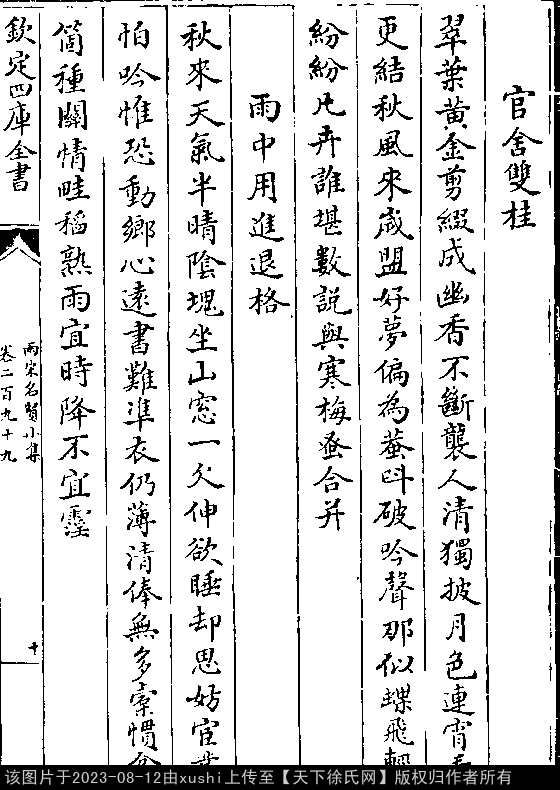 官舍雙桂
翠葉黃金剪綴成幽香不斷襲人清獨披月色連宵
更結秋風來歲盟好夢偏為蛩呌破吟聲那似蝶飛輕
紛紛凡卉誰堪數說與寒梅蚤合并
雨中用進退格
秋來天氣半晴陰塊坐山窓一欠伸欲睡却思妨宦業
怕吟惟恐動鄉心遠書難凖衣仍薄清俸無多槖慣貧
箇種關情畦稻熟雨宜時降不宜霪
欽定四庫全書
兩宋名賢小集
卷二百九十九
十
该图片于2023-08-12由xushi上传至【天下徐氏网】版权归作者所有